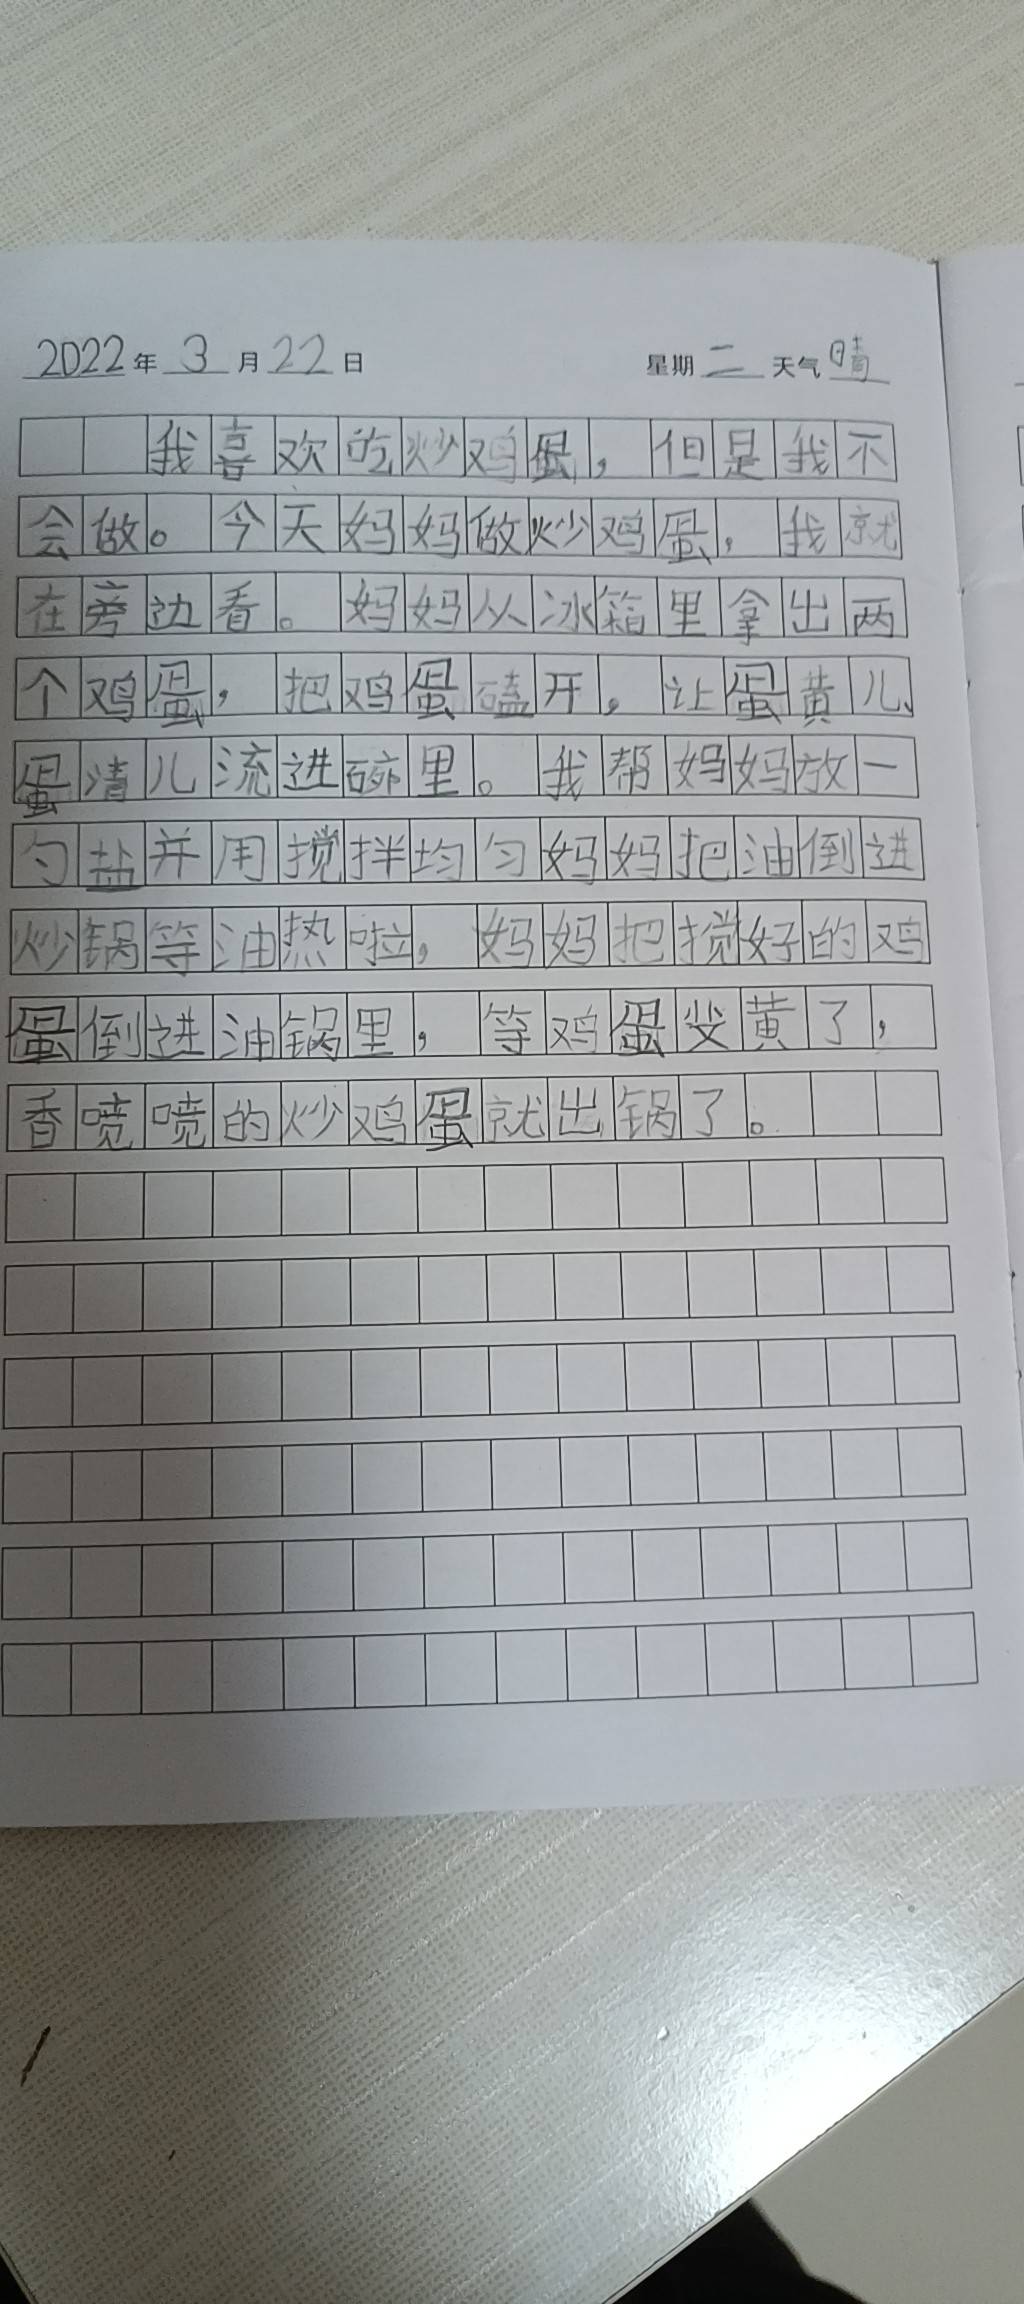 2022年3月22日 星期二 天气晴
我喜欢吃炒鸡蛋，但是我不
会做。今天妈妈做炒鸡蛋，我就
在旁边看。妈妈从冰箱里拿出两
个鸡蛋，把鸡蛋磕开，让蛋黄儿、
蛋清儿流进碗里。我帮妈妈放一
勺盐并用搅拌均匀妈妈把油倒进
炒锅等油热啦，妈妈把搅好的鸡
蛋倒进油锅里，等鸡蛋变黄了，
香喷喷的炒鸡蛋就出锅了。